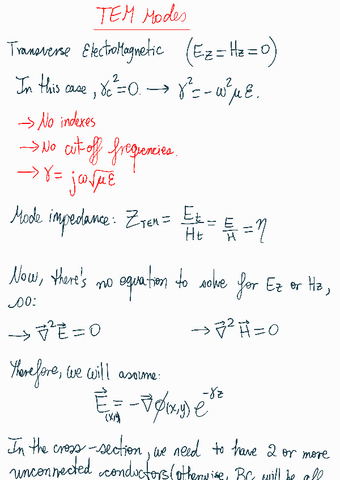 TEM Modes
Transverse ElectroMagnetic (Ez = Hz = 0)
In this case, γc² = 0. → γ² = -ω²με.
→ No indexes
→ No cut-off frequencies.
→ γ = jω√με
Mode impedance: Z_TEM = Et/Ht = E/H = η
Now, there's no equation to solve for Ez or Hz,
so:
→ ∇⃗²E⃗ = 0 → ∇⃗²H⃗ = 0
Therefore, we will assume:
E⃗(x,y) = -∇⃗φ(x,y) e^-γz
In the cross-section, we need to have 2 or more
unconnected conductors (otherwise, BC will be all